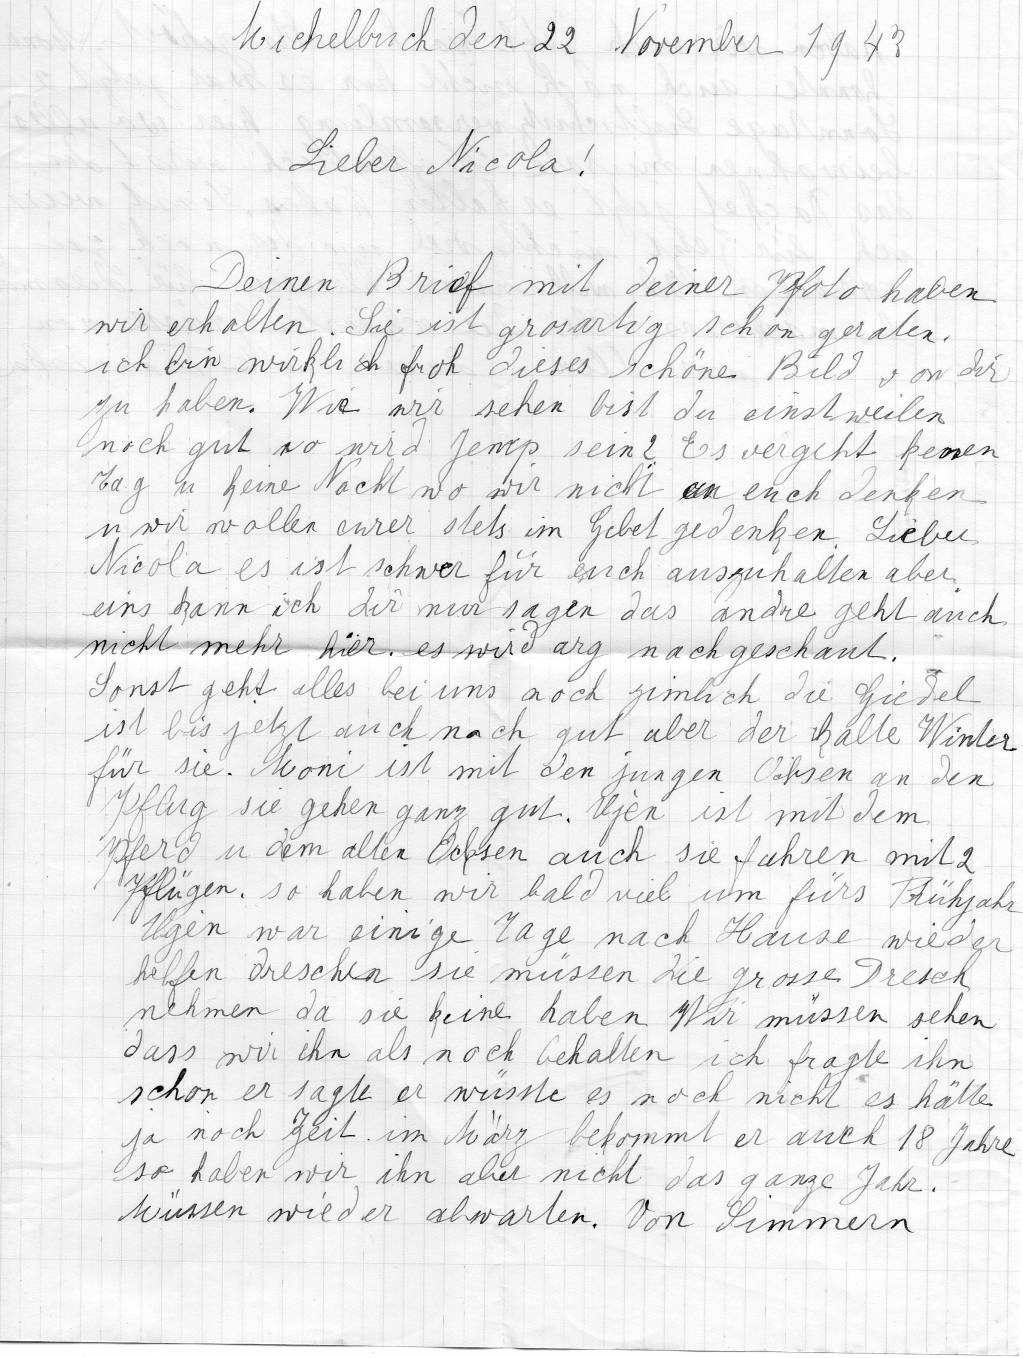 Michelbuch den 22 November 1943
Lieber Nicola!
Deinen Brief mit deiner Pfoto haben
wir erhalten. Sie ist grosartig schön geraten.
ich bin wirklich froh dieses schöne Bild von dir
zu haben. Wie wir sehen bist du einstweilen
noch gut wo wird Jemp sein? Es vergeht keinen
Tag u keine Nacht wo wir nicht an euch denken
u wir wollen eurer stets im Gebet gedenken. Lieber
Nicola es ist schwer für euch auszuhalten aber
eins kann ich dir nur sagen das andre geht auch
nicht mehr hier. es wird arg nachgeschaut.
Sonst geht alles bei uns noch zimlich die Giedel
ist bis jetzt auch noch gut aber der kalte Winter
für sie. Moni ist mit den jungen Ochsen an den
Pflug sie gehen ganz gut. Ujen ist mit dem
Pferd u dem alten Ochsen auch sie fahren mit 2
Pflügen. so haben wir bald viel um fürs Frühjahr
Ujen war einige Tage nach Hause wieder
helfen dreschen sie müssen die grosse Dresch
nehmen da sie keine haben Wir müssen sehen
dass wir ihn als noch behalten ich fragte ihn
schon er sagte er wüsste es noch nicht es hätte
ja noch Zeit. im März bekommt er auch 18 Jahre
so haben wir ihn aber nicht das ganze Jahr.
Müssen wieder abwarten. Von Simmern